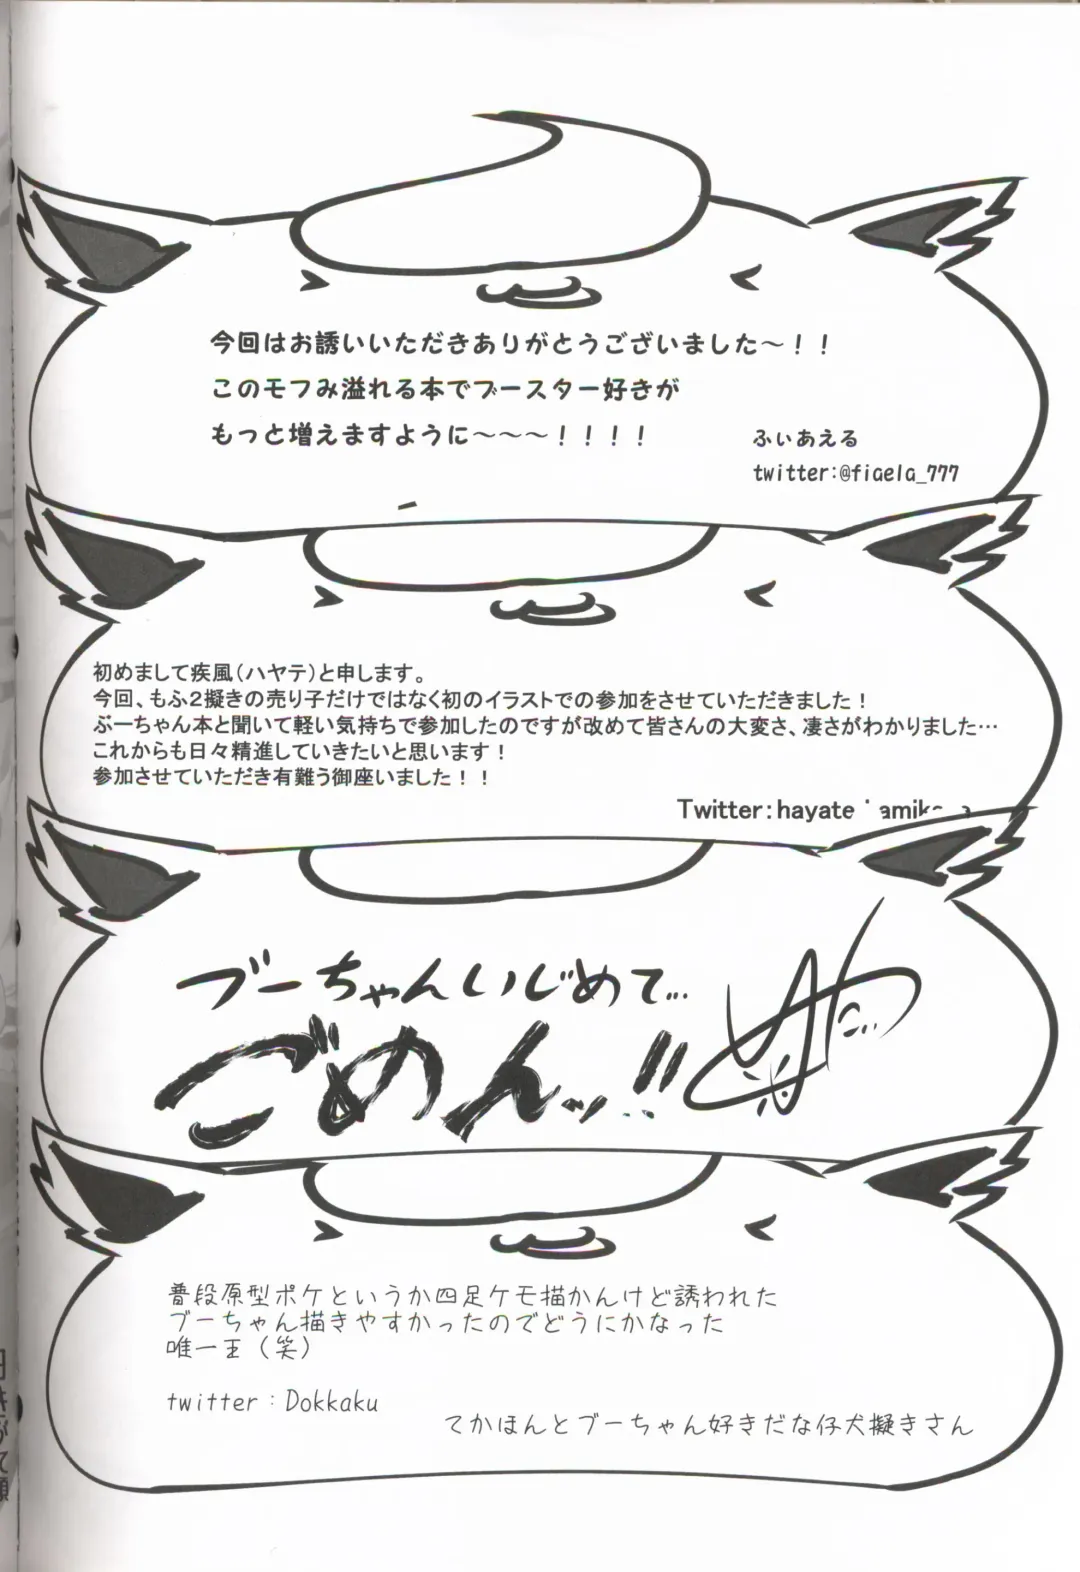 今回はお誘いいただきありがとうございました～！！
このモフみ溢れる本でブースター好きが
もっと増えますように～～～！！！！
ふぃあえる
twitter:@fiaela_777
初めまして疾風（ハヤテ）と申します。
今回、もふ２擬きの売り子だけではなく初のイラストでの参加をさせていただきました！
ぶーちゃん本と聞いて軽い気持ちで参加したのですが改めて皆さんの大変さ、凄さがわかりました…
これからも日々精進していきたいと思います！
参加させていただき有難う御座いました！！
Twitter:hayate
ブーちゃんいじめて…
ごめんッ!!
普段原型ポケというか四足ケモ描かんけど誘われた
ブーちゃん描きやすかったのでどうにかなった
唯一王（笑）
twitter：Dokkaku
てかほんとブーちゃん好きだな仔犬擬きさん